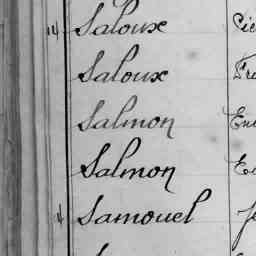 14 Saloux Cie
Saloux Fra
Salmon
Salmon
Samouel